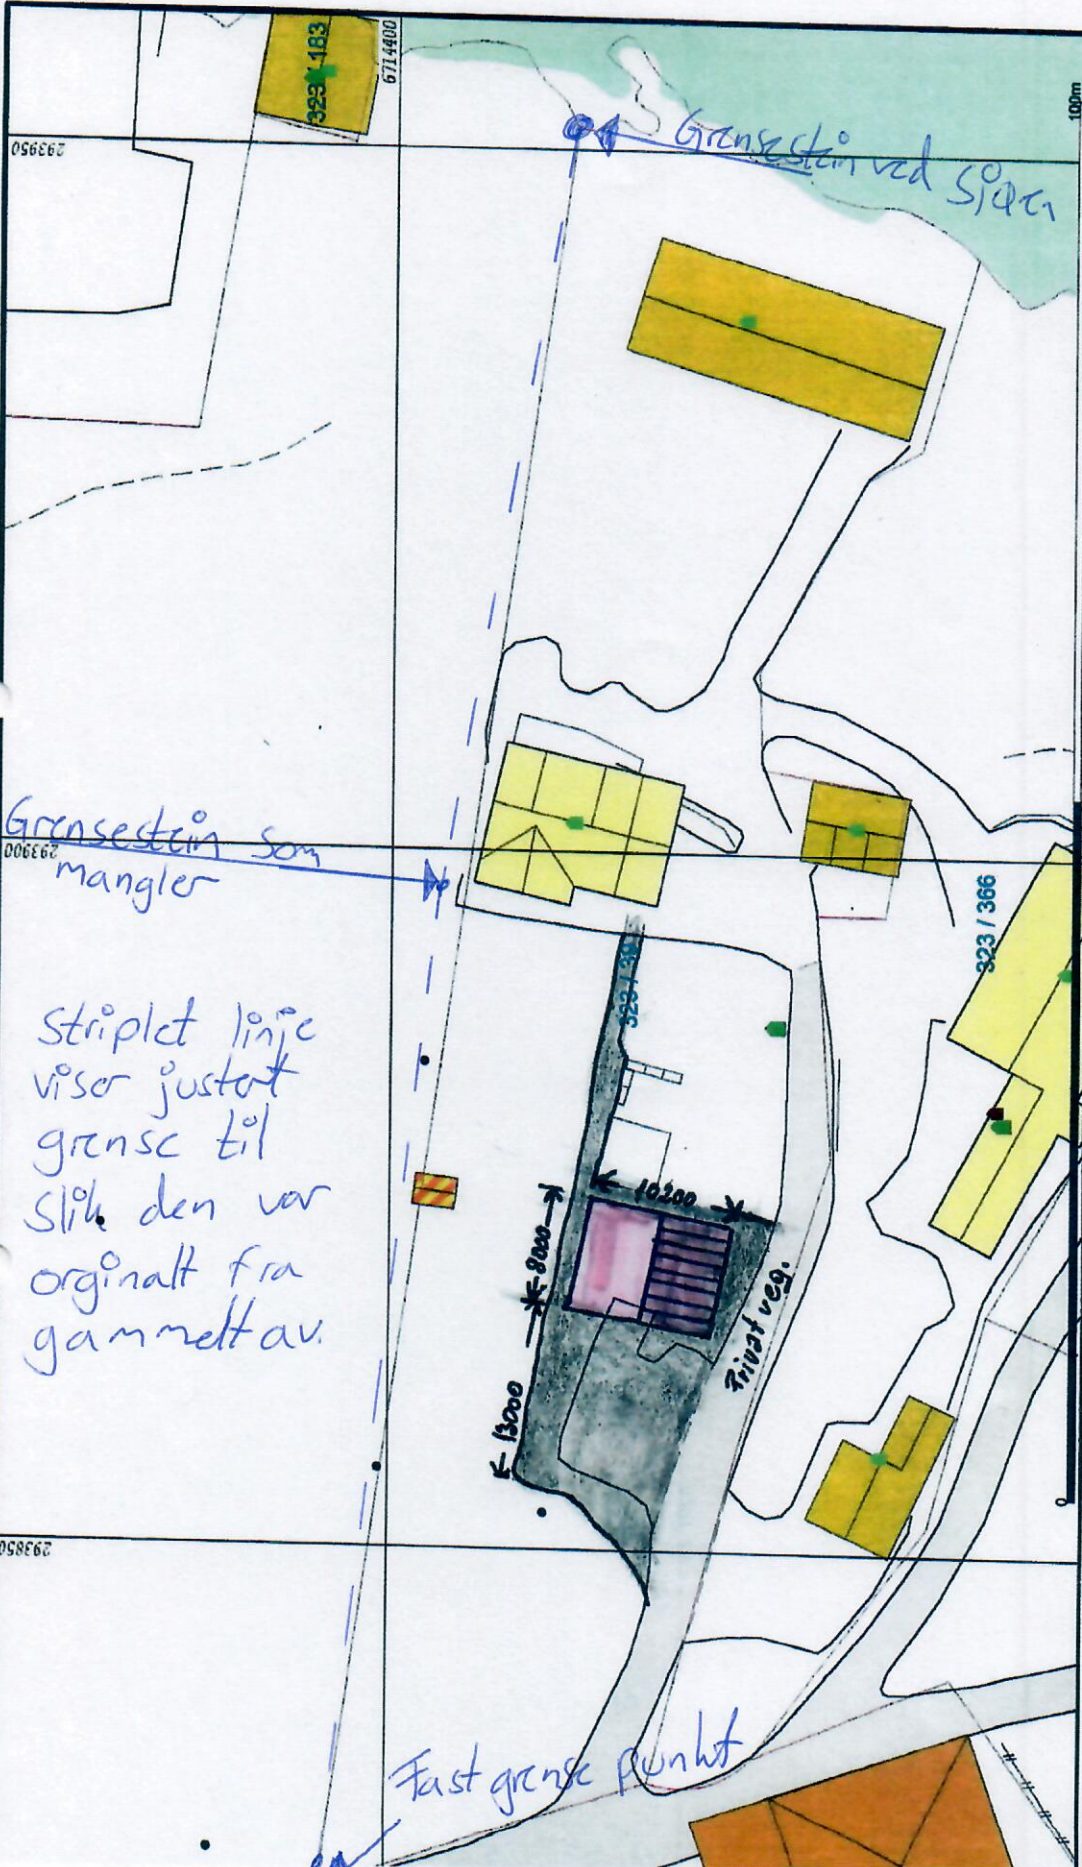 323 / 183
6714400
100m
293950
Grensestein ved Sjøen
Grensestein som
mangler
293900
323 / 366
Striplet linje
viser justert
grense til
slik den var
orginalt fra
gammelt av.
10200
8000
13000
Privat veg.
0
293850
Fast grense punkt